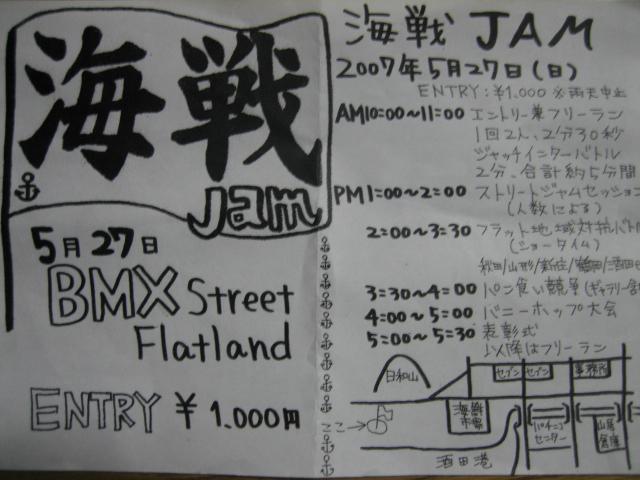 海戦
Jam
5月27日
BMX Street
Flatland
ENTRY ¥1.000円
海戦 JAM
2007年5月27日(日)
ENTRY:¥1.000 ※雨天中止
AM10:00~11:00 エントリー兼フリーラン
1回2人、2分30秒
ジャッチインターバトル
2分、合計約5分間
PM1:00~2:00 ストリートジャムセッション
(人数による)
2:00~3:30 フラット地域対抗バトル
(ショータイム)
秋田/山形/新庄/鶴岡/酒田
3:30~4:00 パン食い競争(ギャラリー
4:00~5:00 バニーホップ大会
5:00~5:30 表彰式
以降はフリーラン
日和山
セブン
セブン
事務所
ここ→
海鮮
市場
パチンコ
センター
山居
倉庫
酒田港